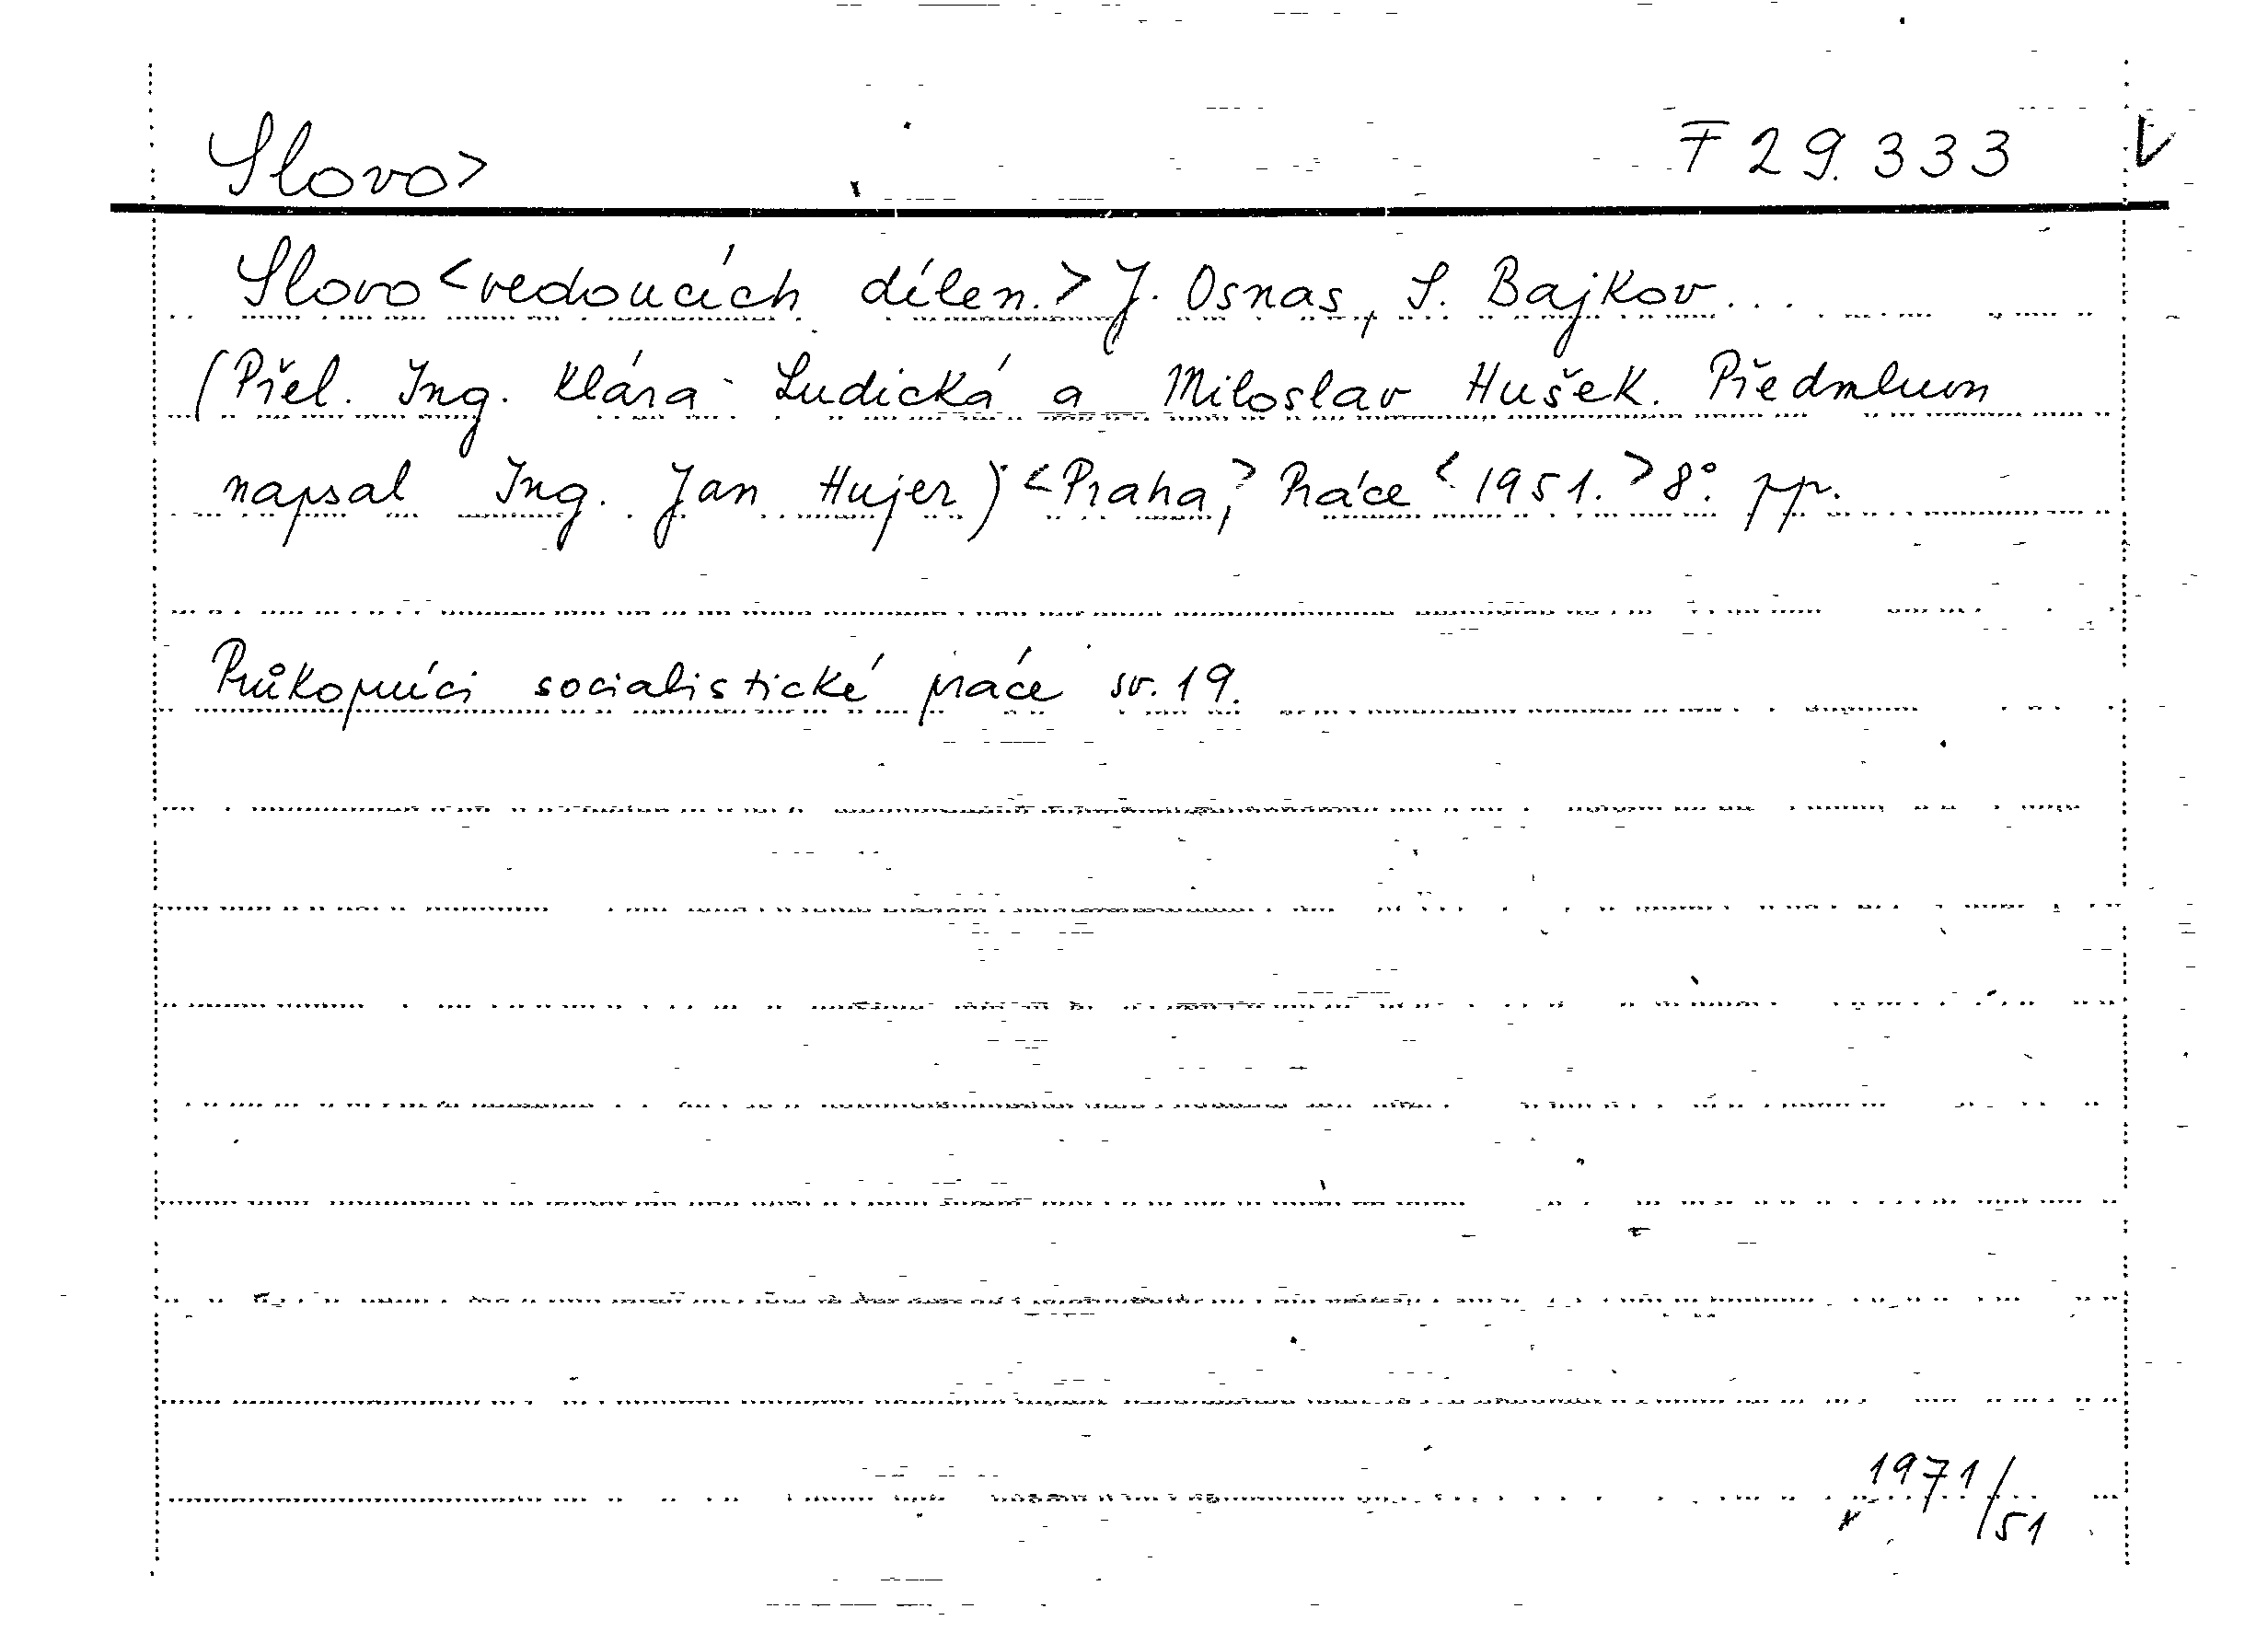 Slovo> F 29.333 V
Slovo <vedoucích dílen.> J. Osnas, S. Bajkov...
(Přel. Ing. Klára Ludická a Miloslav Hušek. Předmluvn
napsal Ing. Jan Hujer) <Praha,> Práce <1951.> 8°. pp.
Průkopníci socialistické práce sv. 19.
1971/51